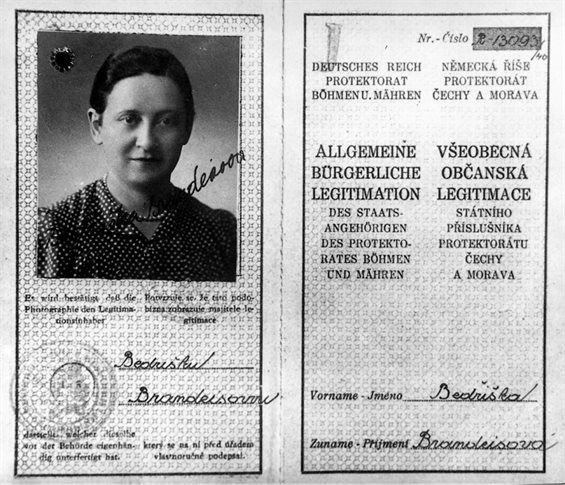 Brandeisova
Es wird bestätigt, daß die
Photographie den Legitima-
tionsinhaber
Potvrzuje se, že tato podo-
bizna zobrazuje majitele le-
gitimace
Bedřišku
Brandeisovou
darstellt, welcher dieselbe
vor der Behörde eigenhän-
dig unterfertigt hat.
který se na ní před úřadem
vlastnoručně podepsal.
Nr. - Číslo
13093
/40
DEUTSCHES REICH
PROTEKTORAT
BÖHMEN U. MÄHREN
NĚMECKÁ ŘÍŠE
PROTEKTORÁT
ČECHY A MORAVA
ALLGEMEINE
BÜRGERLICHE
LEGITIMATION
DES STAATS-
ANGEHÖRIGEN
DES PROTEKTO-
RATES BÖHMEN
UND MÄHREN
VŠEOBECNÁ
OBČANSKÁ
LEGITIMACE
STÁTNÍHO
PŘÍSLUŠNÍKA
PROTEKTORÁTU
ČECHY
A MORAVA
Vorname - Jméno Bedřiška
Zuname - Příjmení Brandeisova